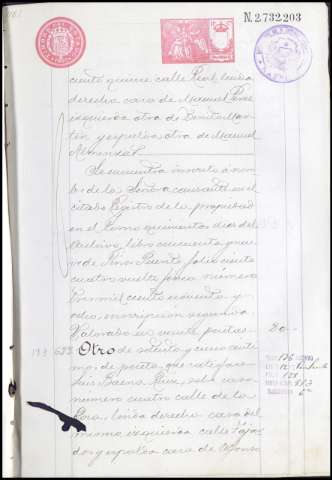 N.2.732,203
ciento quince calle Real, linda
derecha casa de Manuel Perez
izquierda otra de Benito Mar-
tin y espalda otra de Manuel
Almenzal
Se encuentra inscrito á nom-
bre de la Señora causante en el
citado Registro de la propiedad
en el tomo quinientos dos del
Archivo, libro cincuenta y nue-
ve de folio ciento
cuatro vuelto finca número
tres mil ciento noventa y
ocho, inscripcion segunda.
Valorado en veinte pesetas 20-
Otro de setenta y cinco cénti-
mos de peseta, que satisface
Luis Baena Ruiz, sobre casa
número cuatro calle de la
linda derecha casa del
mismo izquierda calle
y espalda casa de Alfonso